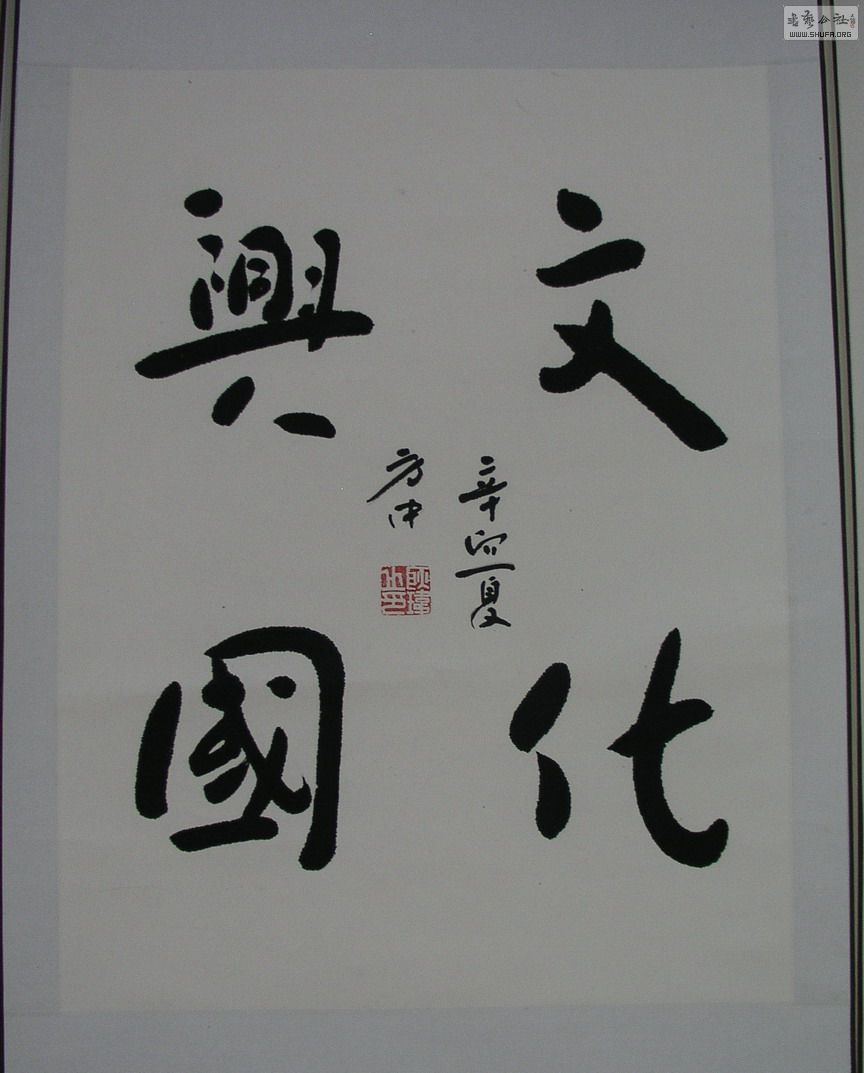 文化
興國
辛卯夏
方中
書藝公社
WWW.SHUFA.ORG